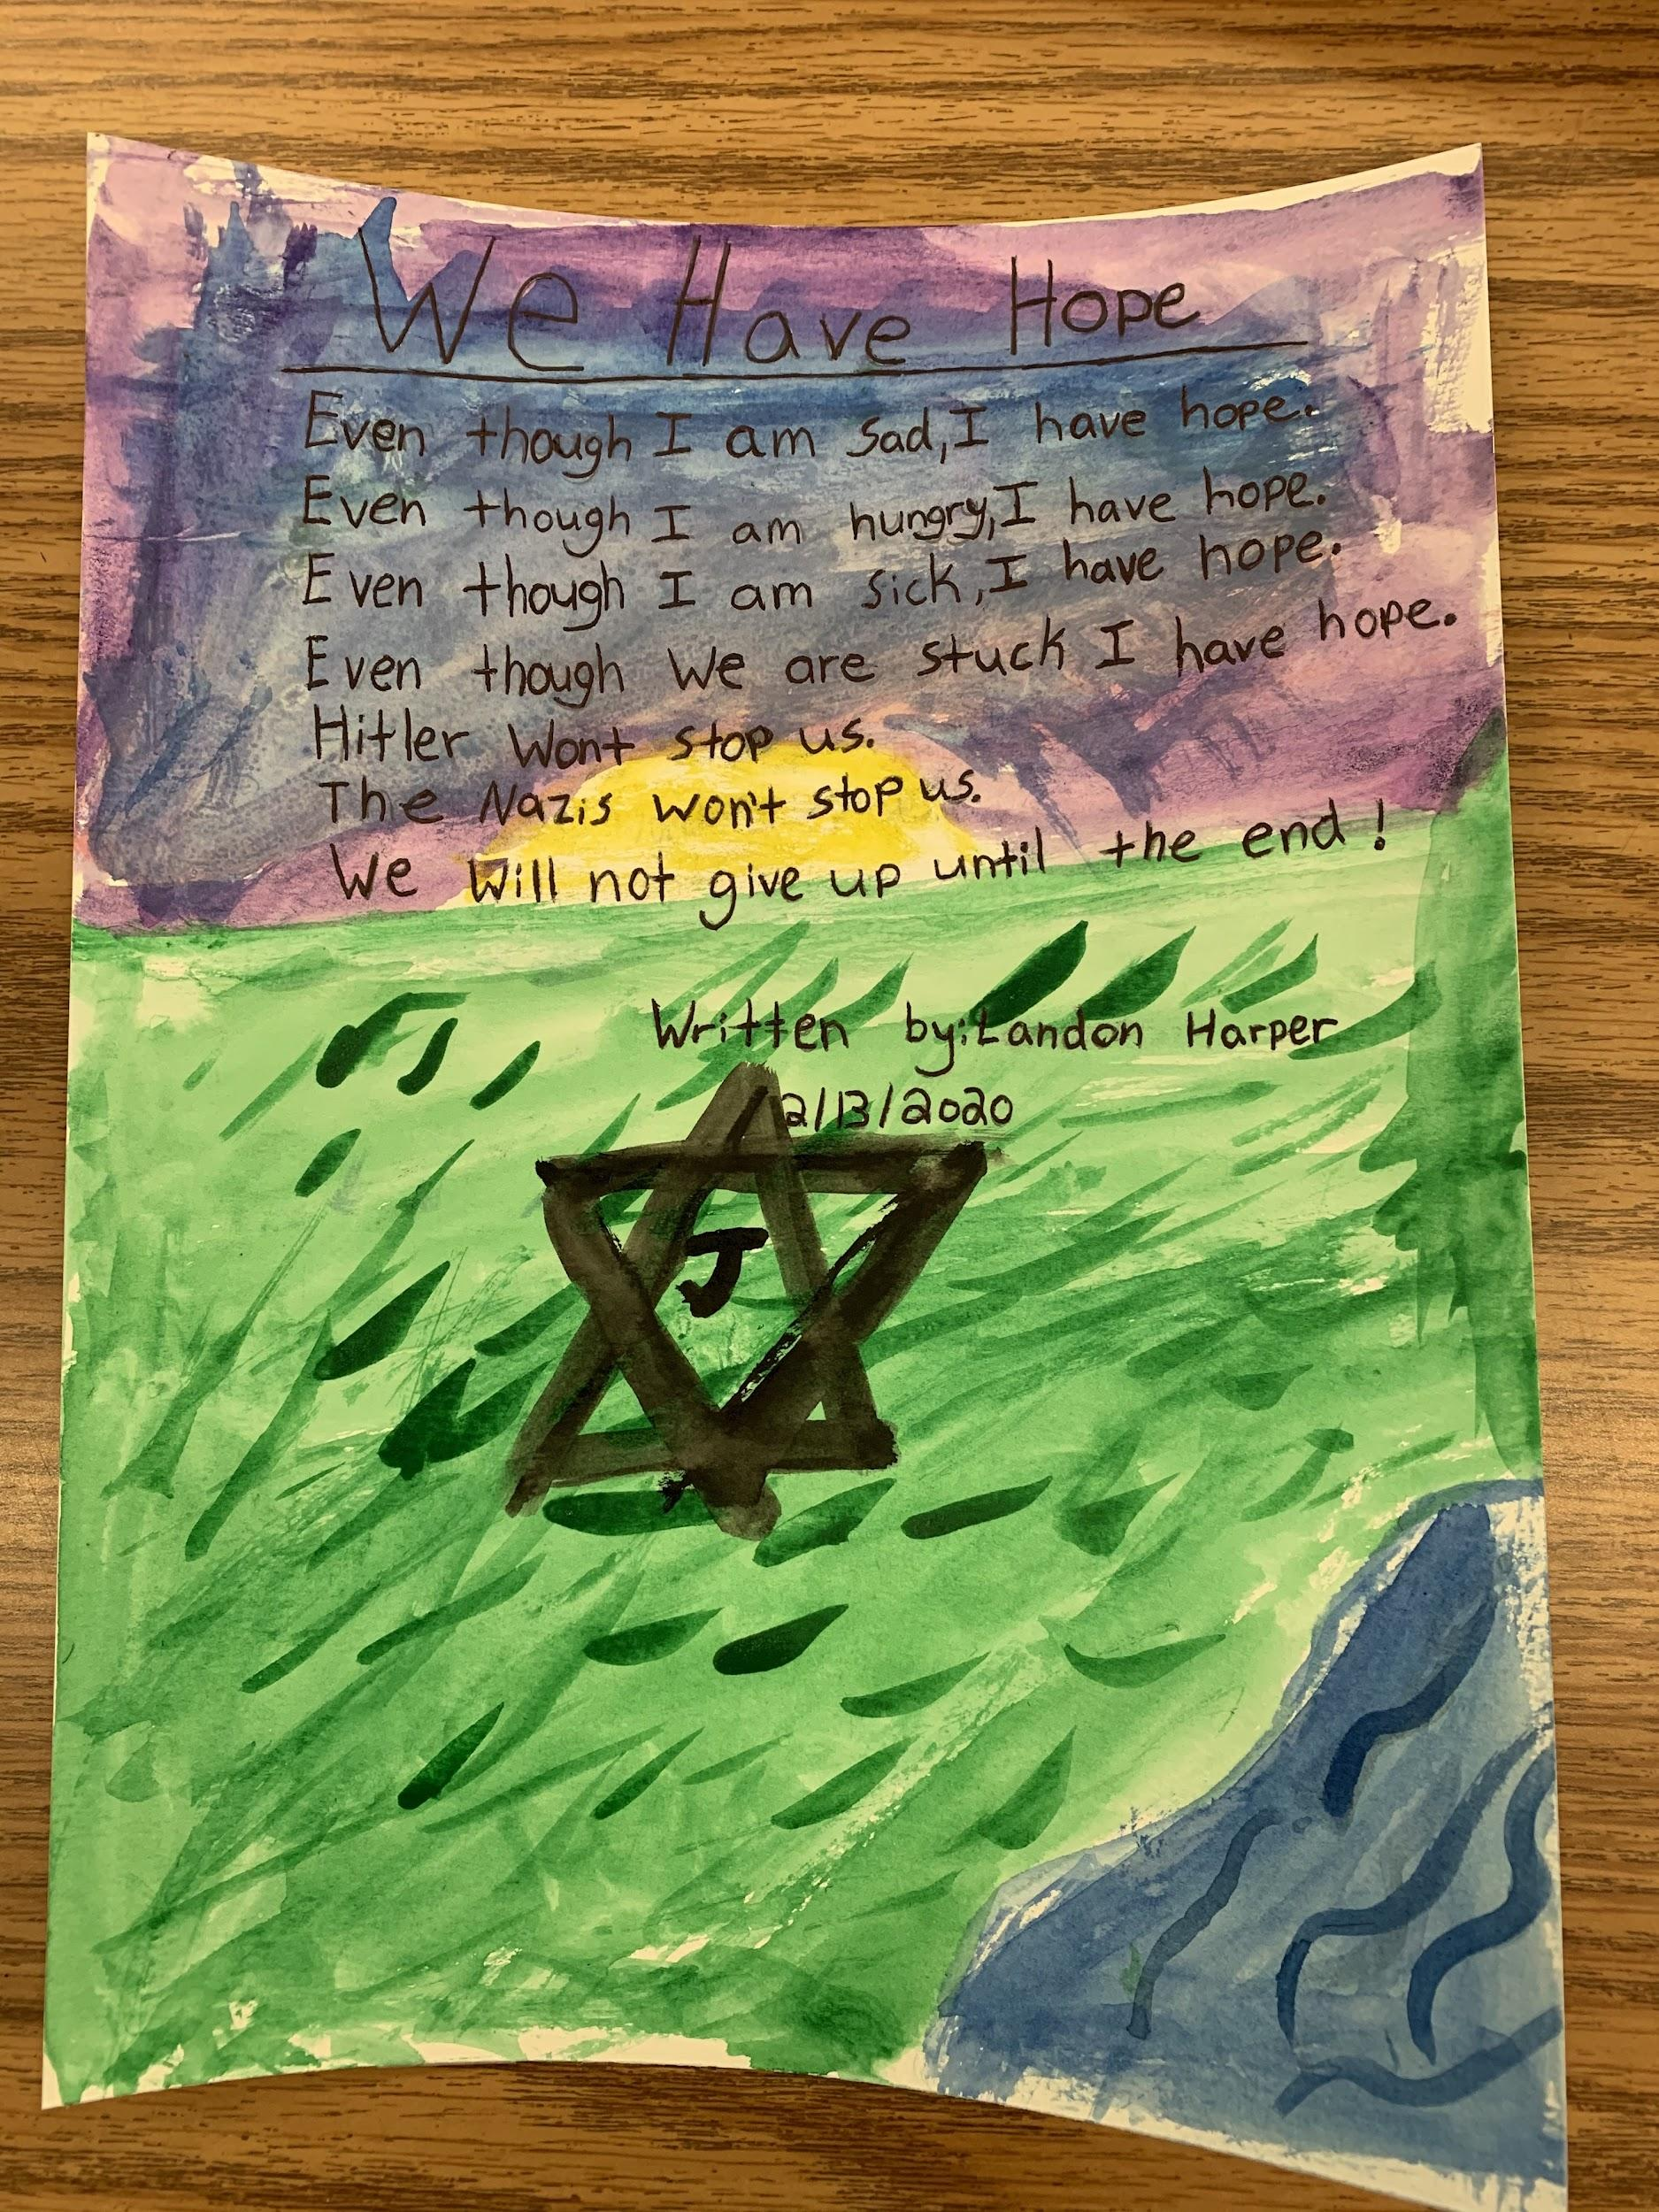 We Have Hope
Even though I am sad, I have hope.
Even though I am hungry, I have hope.
Even though I am sick, I have hope.
Even though we are stuck I have hope.
Hitler Wont stop us.
The Nazis won't stop us.
We Will not give up until the end!
Written by: Landon Harper
2/13/2020
J